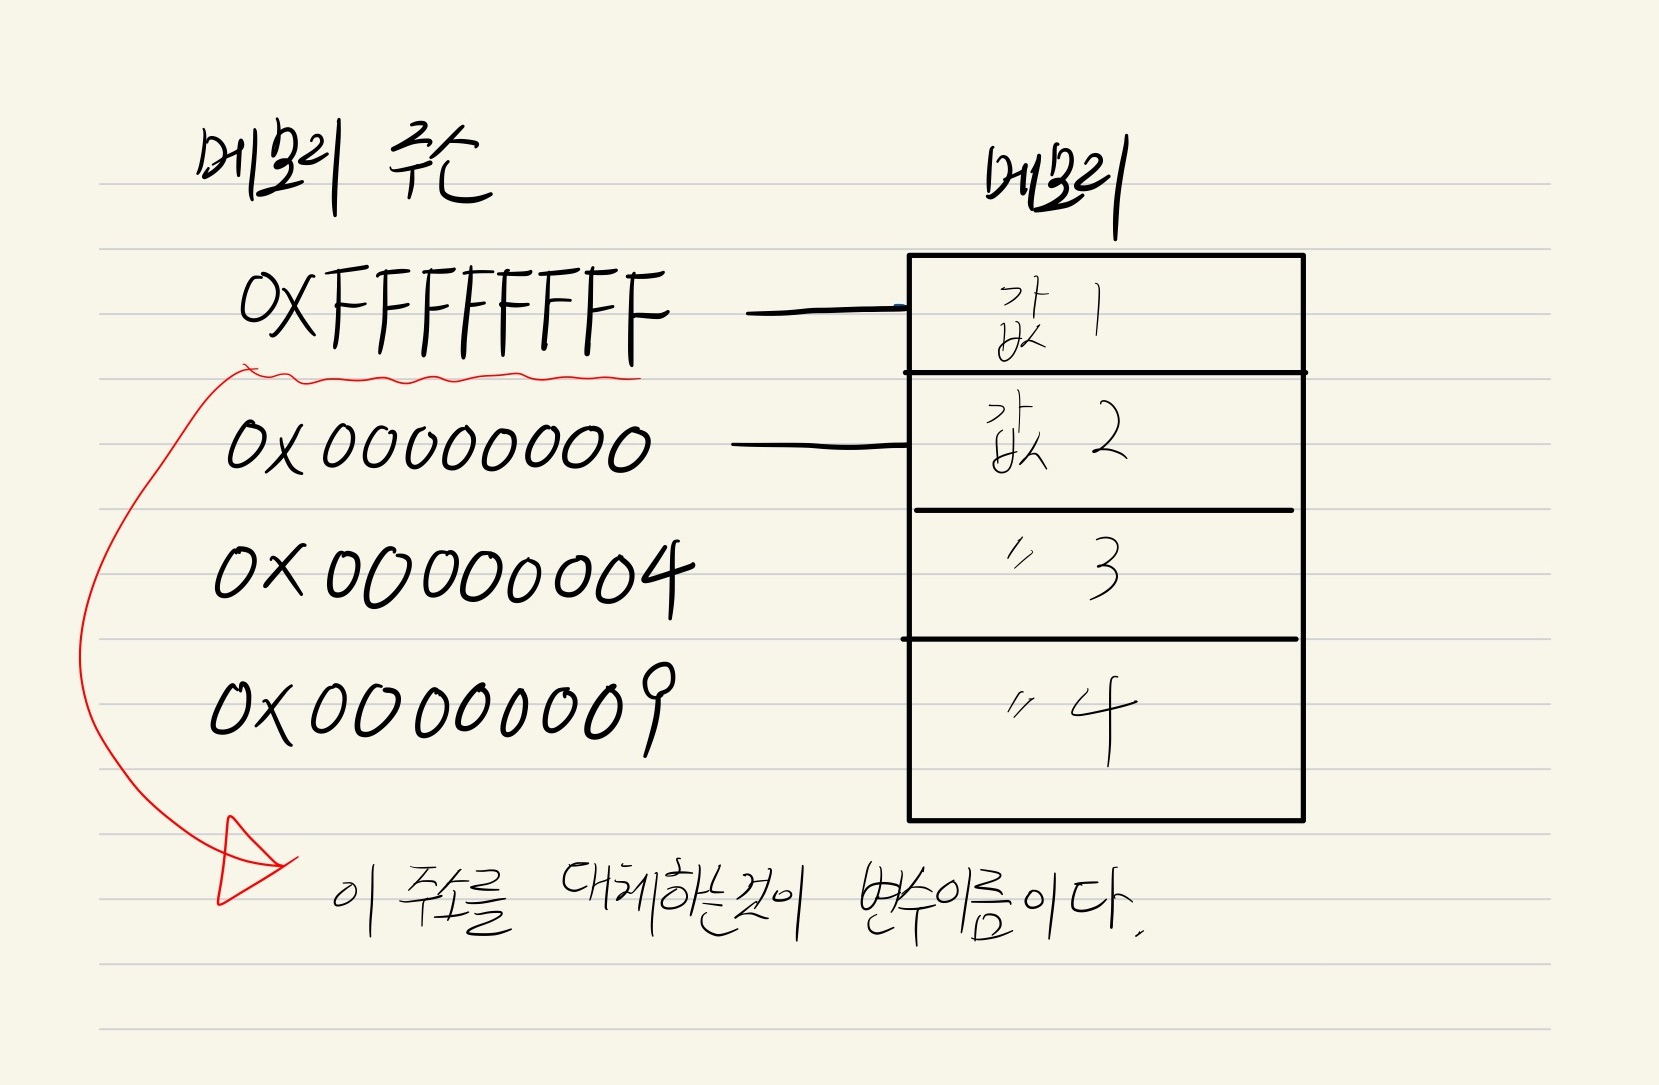 메모리 주소 메모리
0XFFFFFFFF 값 1
0x00000000 값 2
0x00000004 〃 3
0x00000009 〃 4
이 주소를 대체하는것이 변수이름이다.